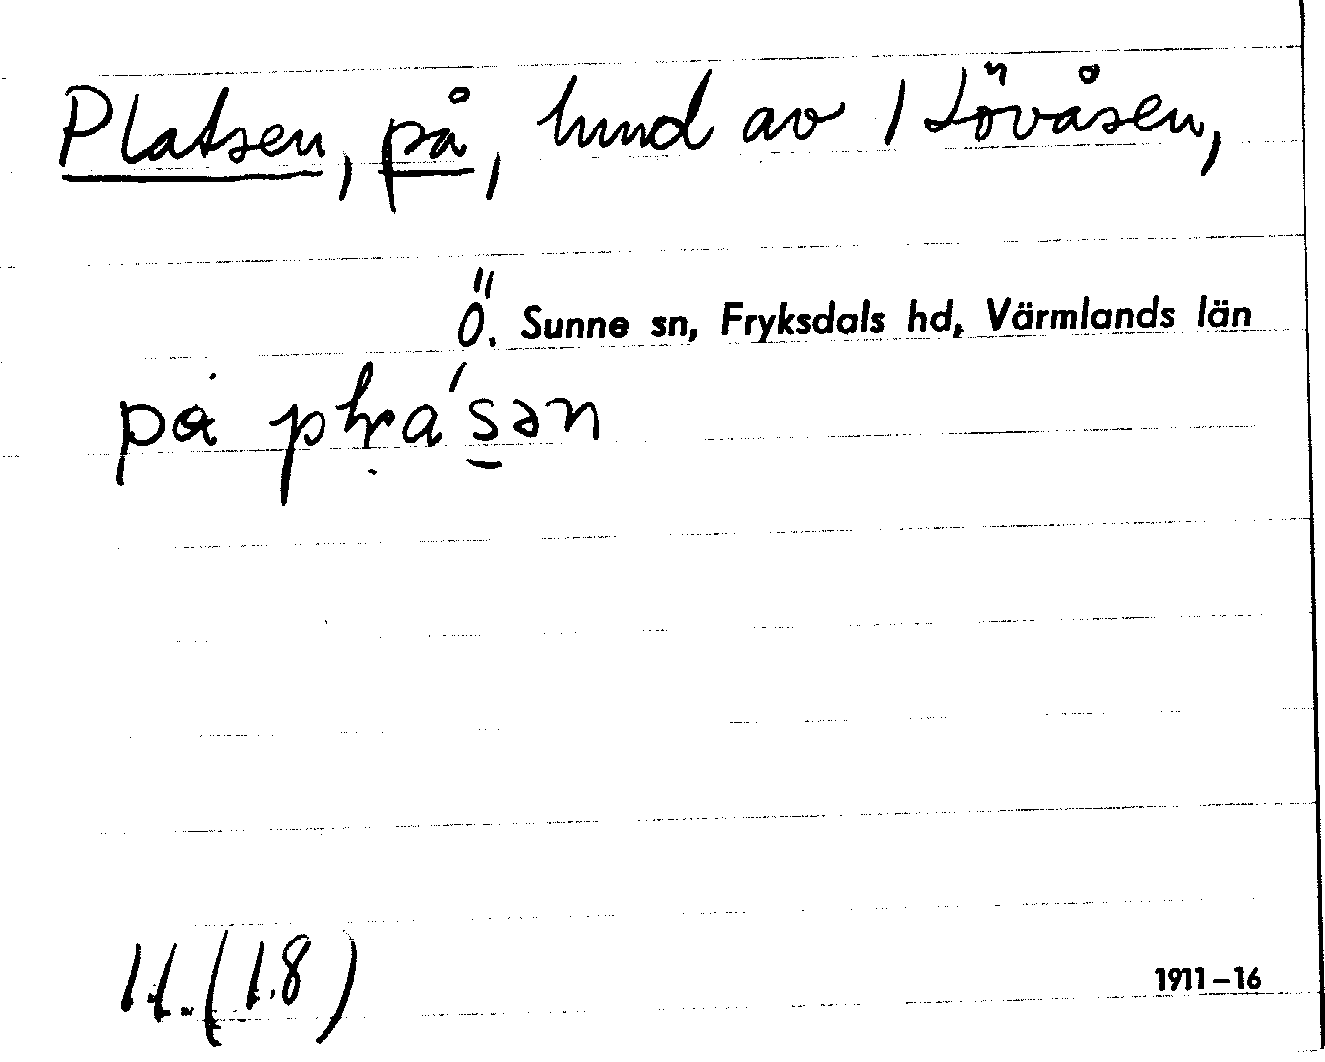 Platsen, på, hmd av 1 Lövåsen,
Ö. Sunne sn, Fryksdals hd, Värmlands län
på
11. (1.8)
1911–16